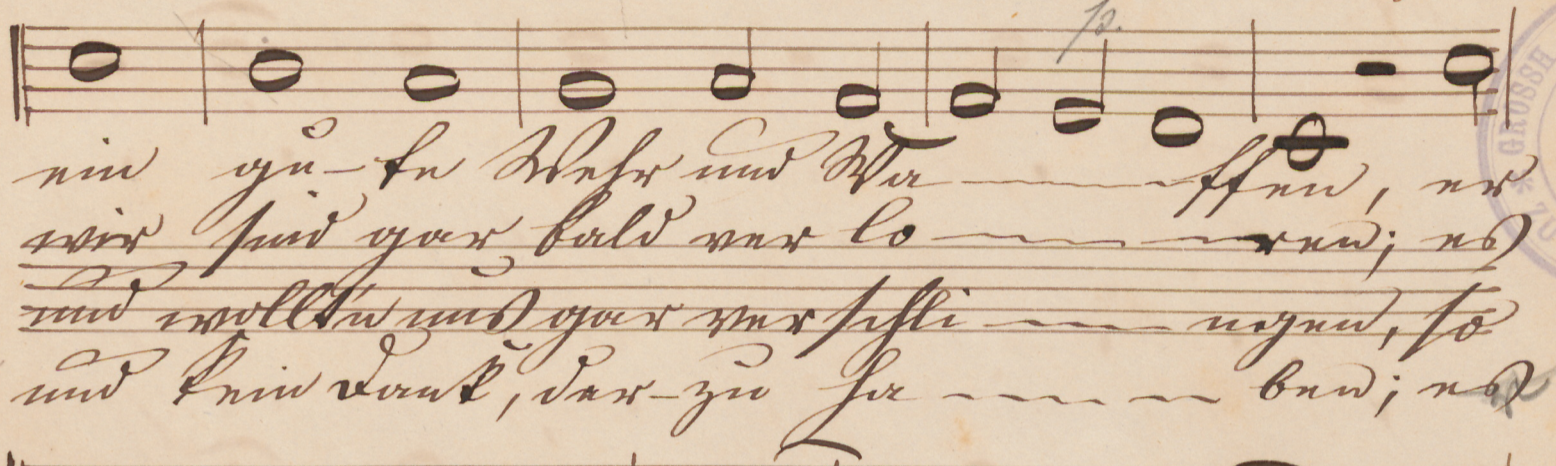 ein gu-te Wehr und Wa — — — ffen, er
wir sind gar bald ver lo — — — ren; es
und wollt'n uns gar verschli — — — ngen, so
und kein Dank, der-zu ha — — — — ben; es
GROSSH